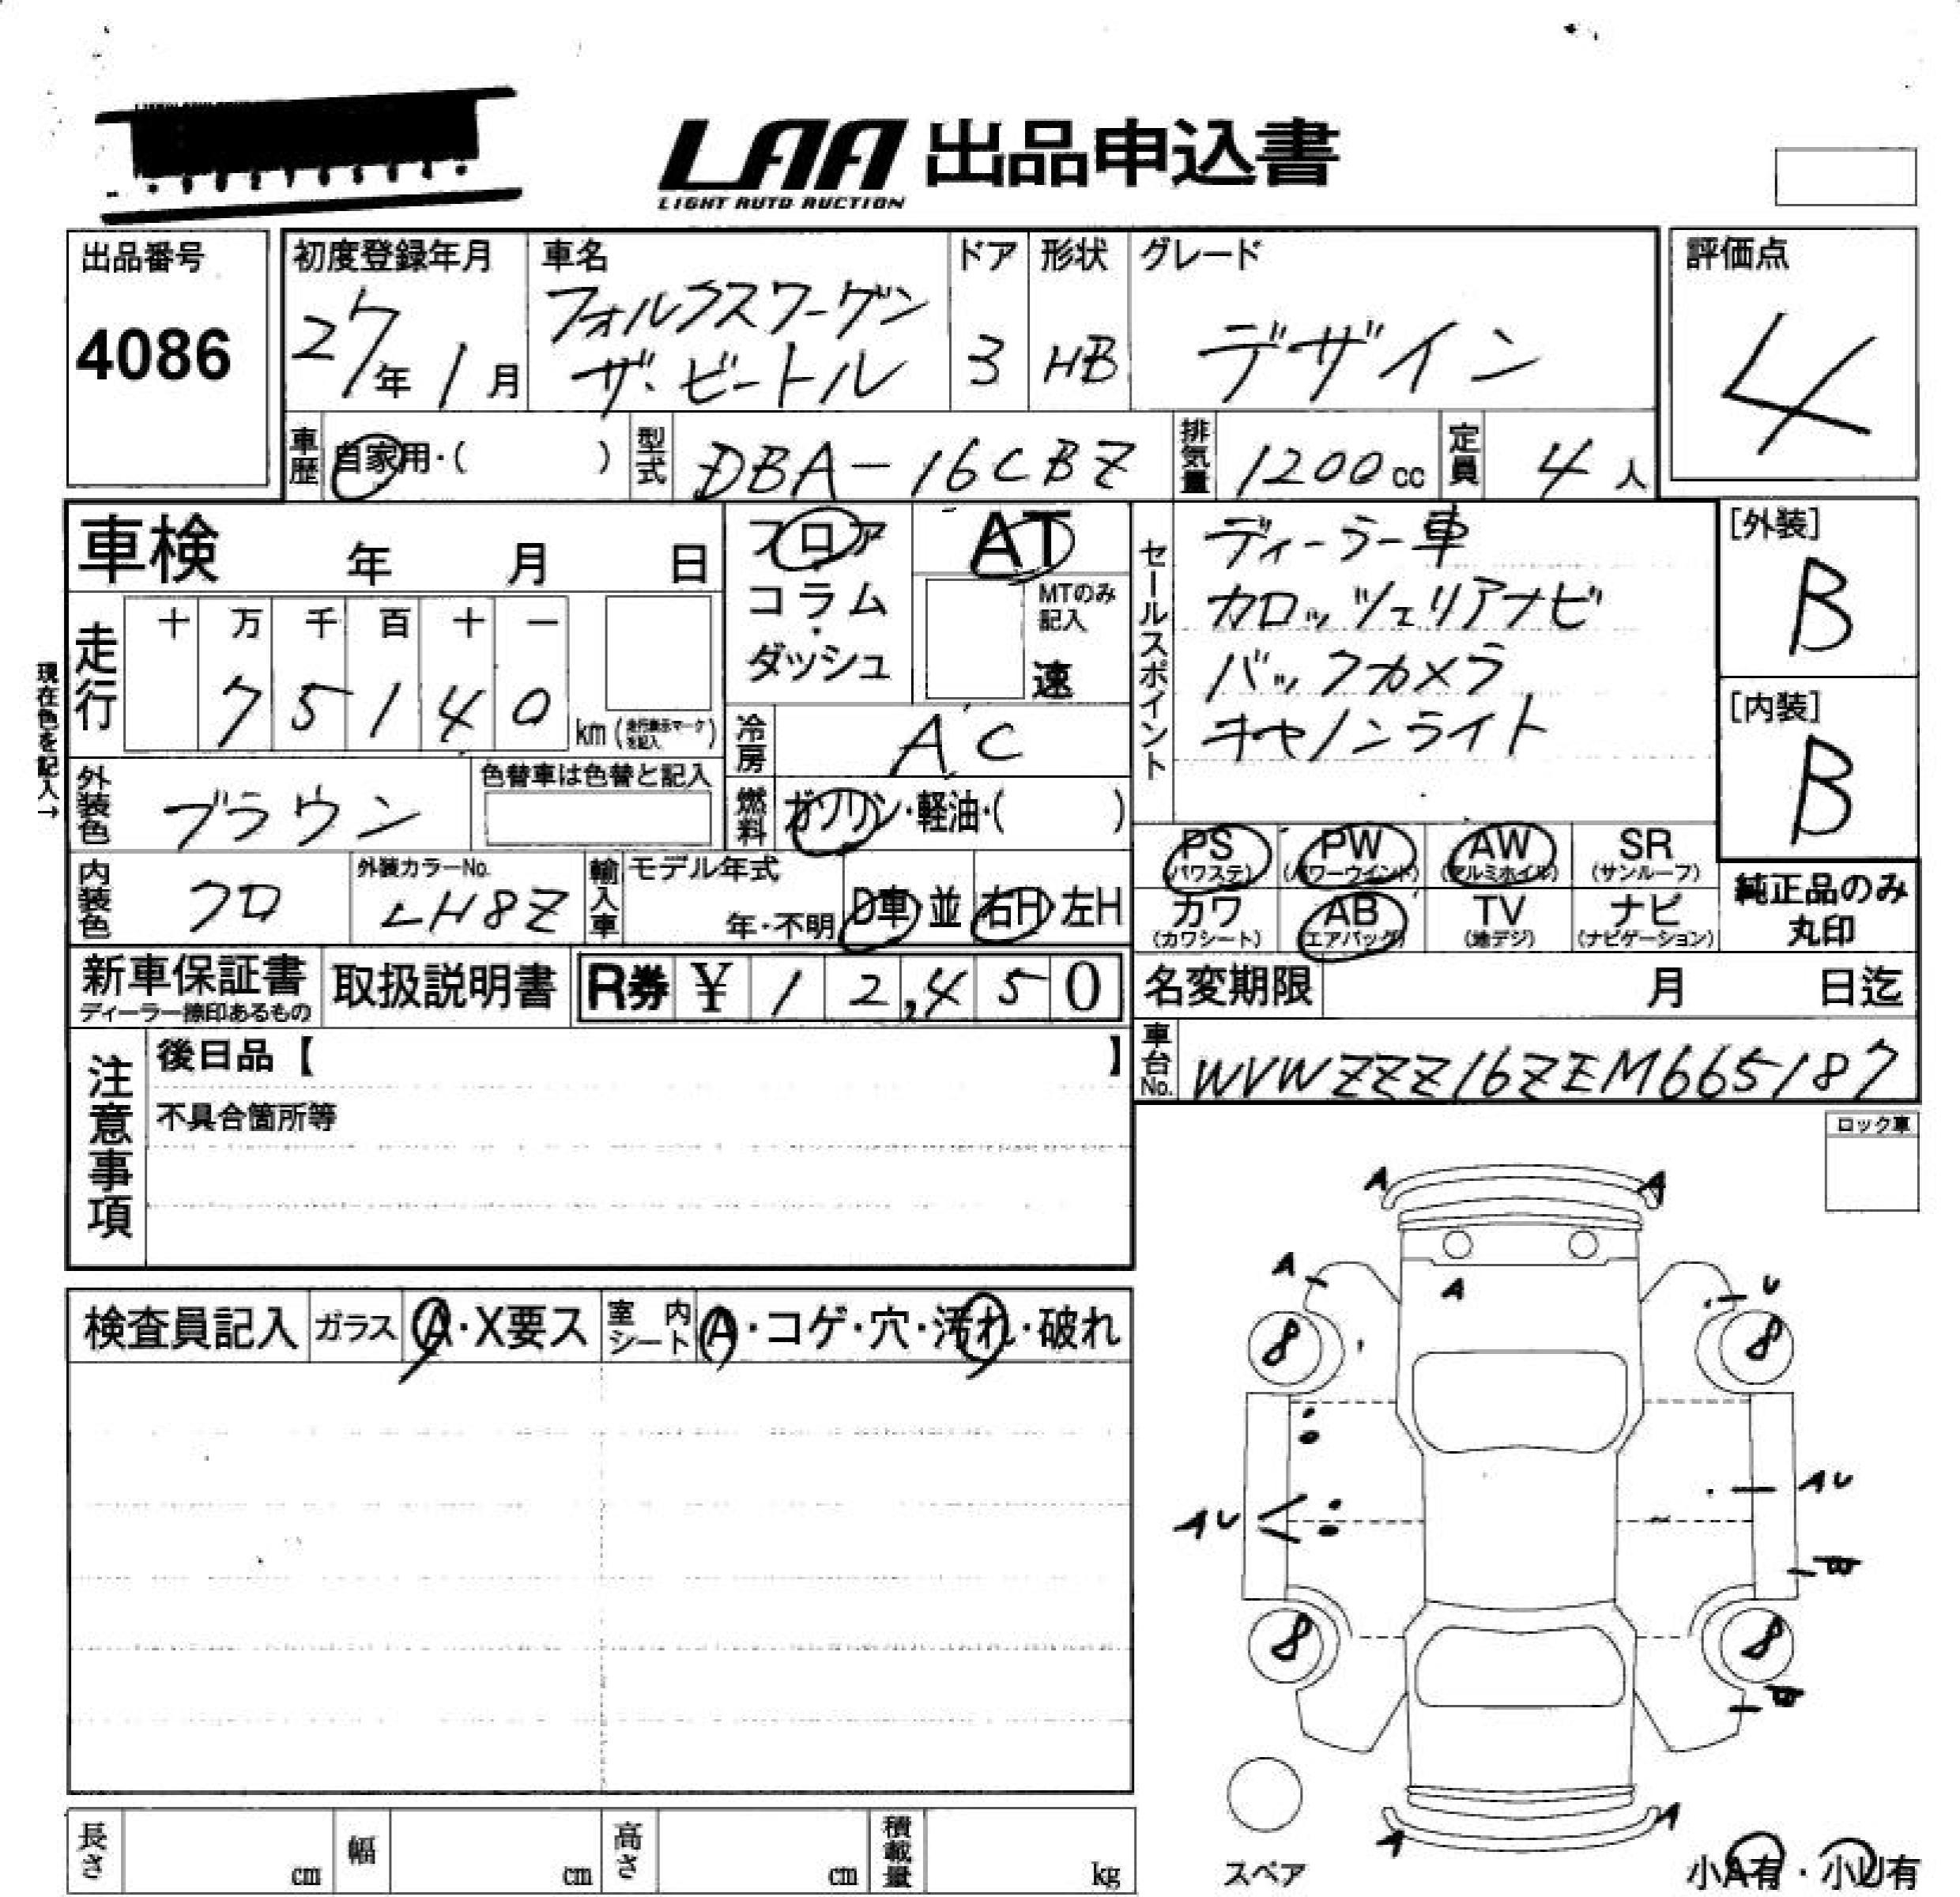 LAA 出品申込書
LIGHT AUTO AUCTION
出品番号
4086
初度登録年月
27年 1月
車名
フォルクスワーゲン
ザ・ビートル
ドア
3
形状
HB
グレード
デザイン
評価点
4
車歴 自家用・( )
型式 DBA-16CBZ
排気量 1200cc
定員 4人
車検 年 月 日
走行 十 万 千 百 十 一
75140 km
(走行表示マークを記入)
現在色を記入→
フロア
コラム
・
ダッシュ
AT
MTのみ
記入
速
冷房 AC
燃料 ガソリン・軽油・( )
外装色 ブラウン
色替車は色替と記入
内装色 クロ
外装カラーNo.
LH8Z
輸入車 モデル年式
年・不明 D車 並 右H 左H
セールスポイント
ディーラー車
カロッツェリアナビ
バックカメラ
キセノンライト
[外装]
B
[内装]
B
PS (パワステ)
PW (パワーウインド)
AW (アルミホイル)
SR (サンルーフ)
カワ (カワシート)
AB (エアバッグ)
TV (地デジ)
ナビ (ナビゲーション)
純正品のみ
丸印
新車保証書
ディーラー捺印あるもの
取扱説明書
R券 ¥ 12,450
名変期限 月 日迄
車台No. WVWZZZ16ZEM665187
注意事項
後日品【 】
不具合箇所等
ロック車
検査員記入 ガラス A・X要ス 室内シート A・コゲ・穴・汚れ・破れ
A A
A A U
8 8
AU AU
8 8
A A
スペア
小A有・小U有
長さ cm 幅 cm 高さ cm 積載量 kg